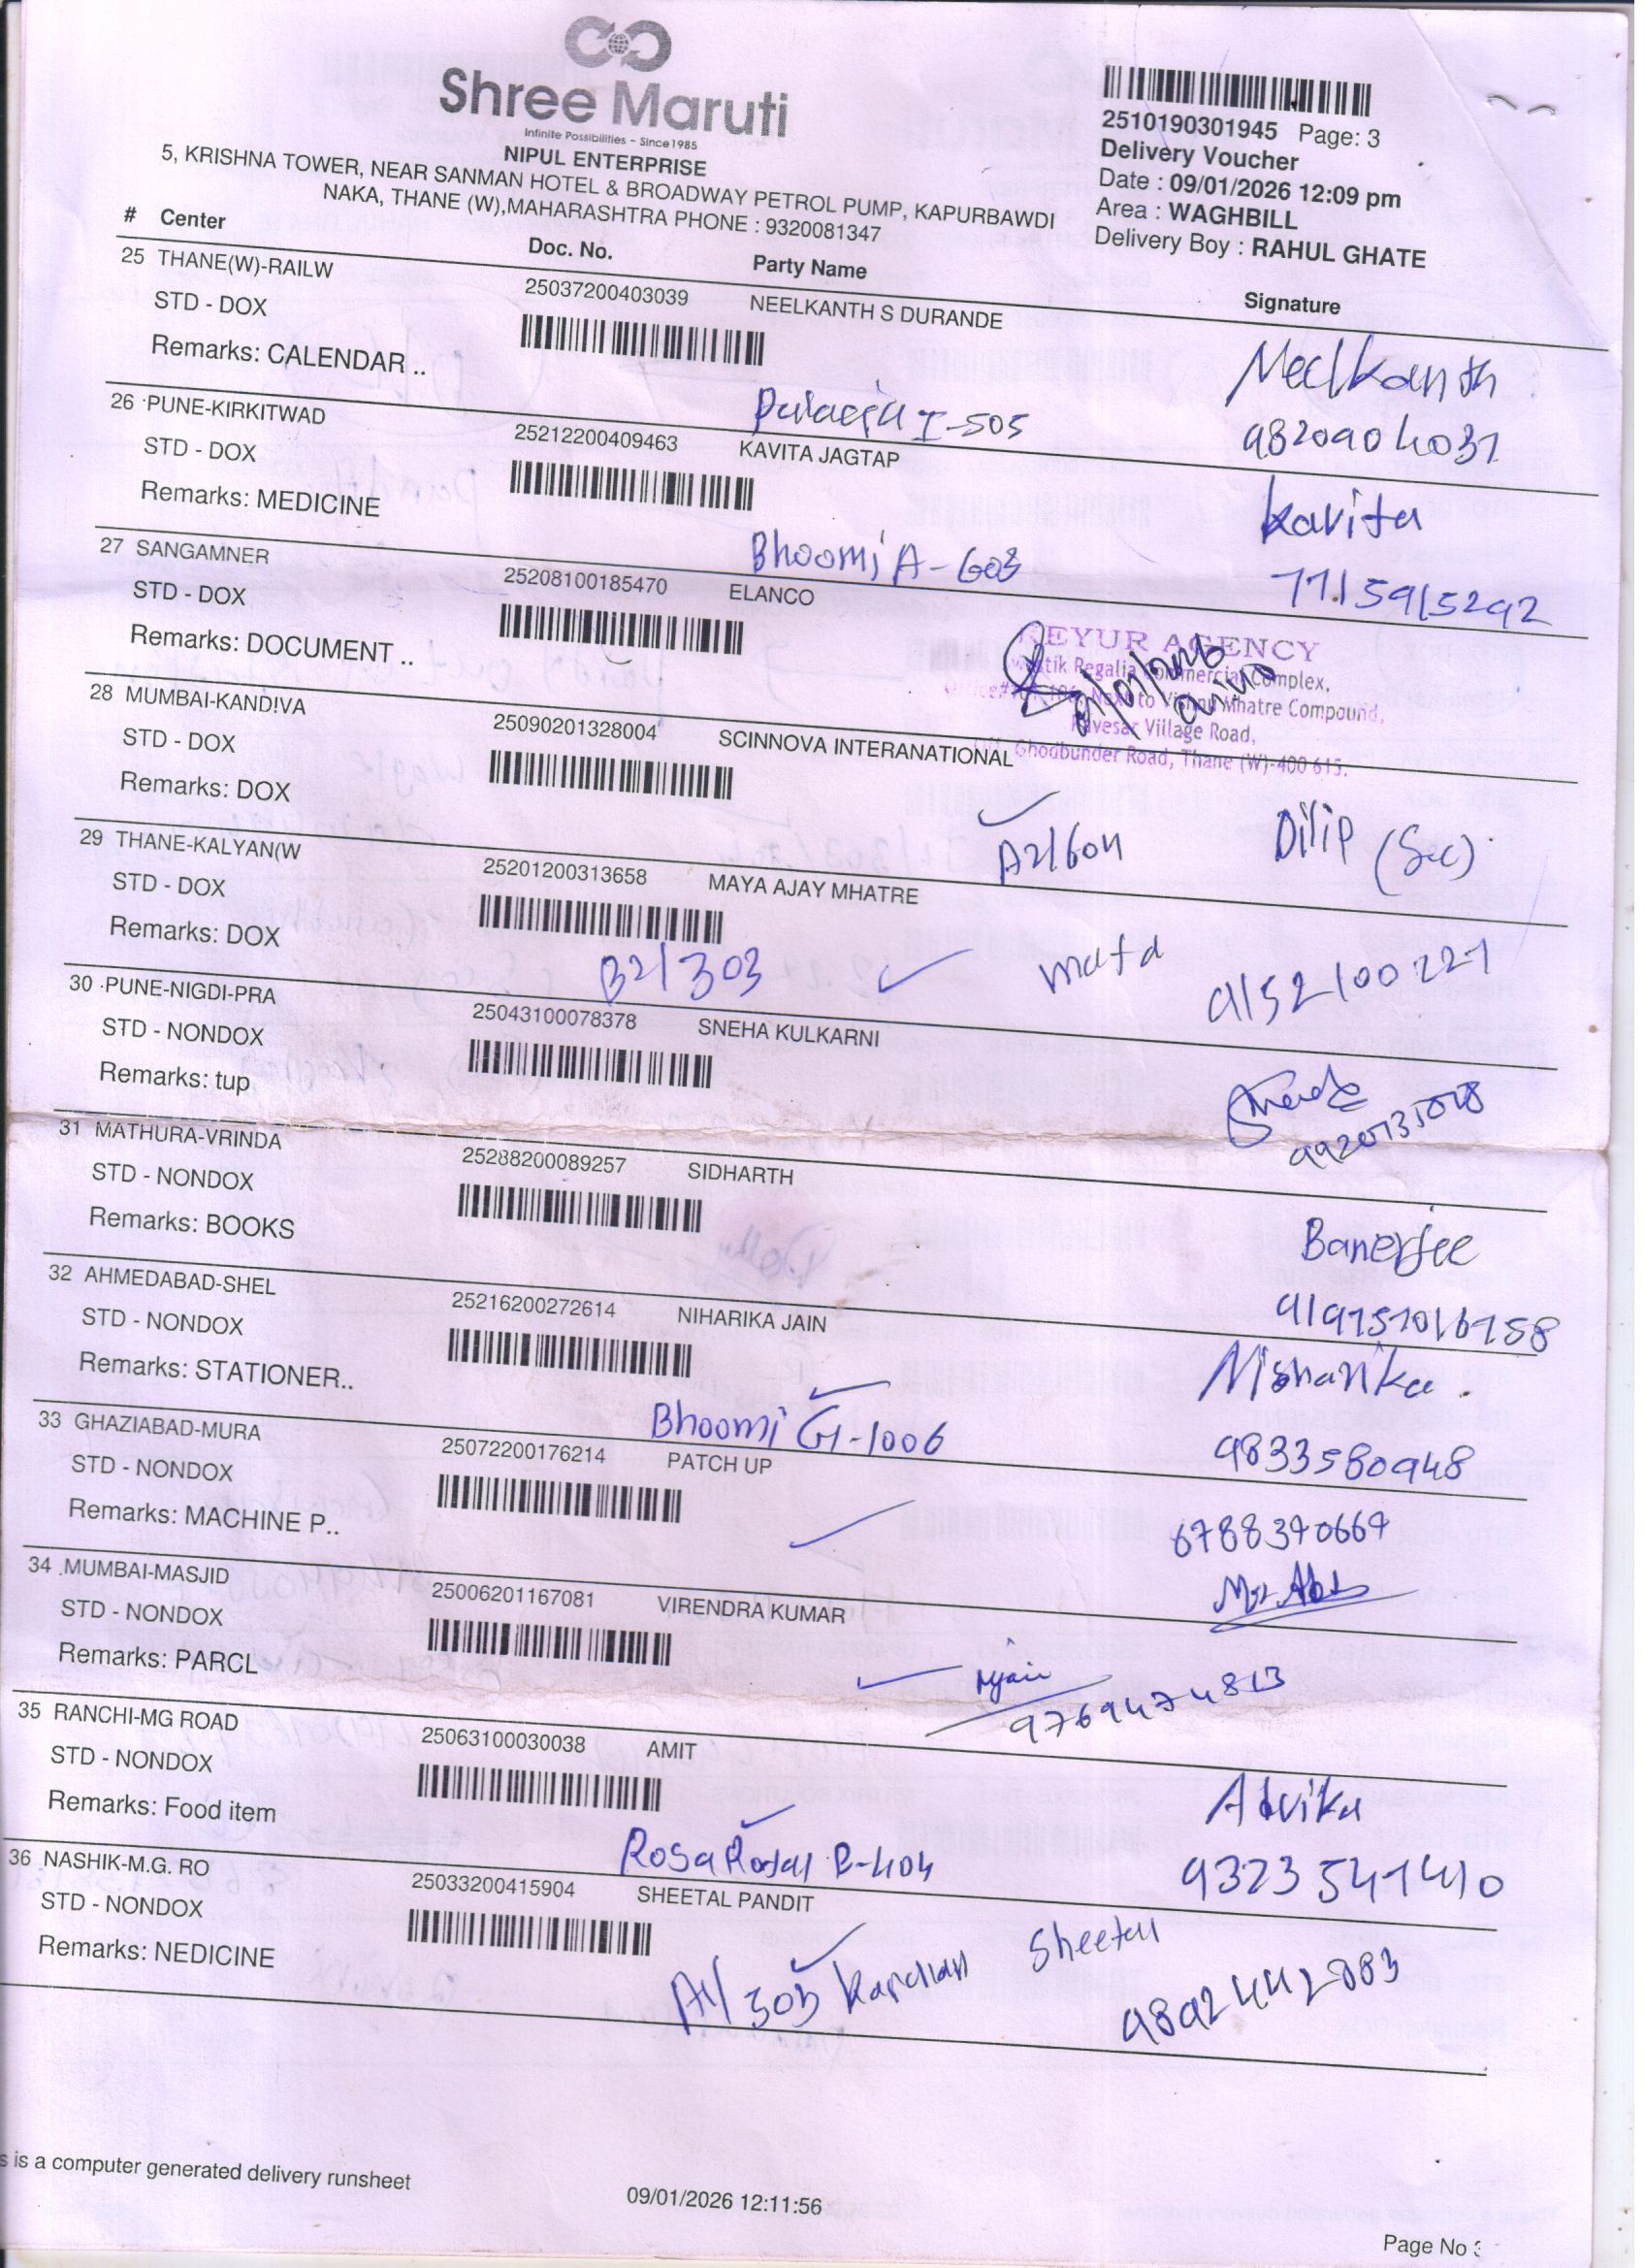 Shree Maruti
Infinite Possibilities - Since1985
NIPUL ENTERPRISE
5, KRISHNA TOWER, NEAR SANMAN HOTEL & BROADWAY PETROL PUMP, KAPURBAWDI
NAKA, THANE (W),MAHARASHTRA PHONE : 9320081347
2510190301945 Page: 3
Delivery Voucher
Date : 09/01/2026 12:09 pm
Area : WAGHBILL
Delivery Boy : RAHUL GHATE
# Center Doc. No. Party Name Signature
25 THANE(W)-RAILW 25037200403039 NEELKANTH S DURANDE
STD - DOX
Remarks: CALENDAR ..
Neelkanth
I-505
9820904031
26 PUNE-KIRKITWAD 25212200409463 KAVITA JAGTAP
STD - DOX
Remarks: MEDICINE
kavita
Bhoomi A-603
7715915292
27 SANGAMNER 25208100185470 ELANCO
STD - DOX
Remarks: DOCUMENT ..
KEYUR AGENCY
Regalia Commercial Complex,
Next to Vishnu Mhatre Compound,
Kavesar Viilage Road,
Ghodbunder Road, Thane (W)-400 615.
28 MUMBAI-KAND!VA 25090201328004 SCINNOVA INTERANATIONAL
STD - DOX
Remarks: DOX
A2/604 Dilip (Sec)
29 THANE-KALYAN(W 25201200313658 MAYA AJAY MHATRE
STD - DOX
Remarks: DOX
B2/303 9152100227
30 PUNE-NIGDI-PRA 25043100078378 SNEHA KULKARNI
STD - NONDOX
Remarks: tup
31 MATHURA-VRINDA 25288200089257 SIDHARTH
STD - NONDOX
Remarks: BOOKS
Banerjee
32 AHMEDABAD-SHEL 25216200272614 NIHARIKA JAIN
STD - NONDOX
Remarks: STATIONER..
Bhoomi G1-1006
9833580948
33 GHAZIABAD-MURA 25072200176214 PATCH UP
STD - NONDOX
Remarks: MACHINE P..
34 MUMBAI-MASJID 25006201167081 VIRENDRA KUMAR
STD - NONDOX
Remarks: PARCL
9769474813
35 RANCHI-MG ROAD 25063100030038 AMIT
STD - NONDOX
Remarks: Food item
Advika
Rosa Royal B-404
9323541410
36 NASHIK-M.G. RO 25033200415904 SHEETAL PANDIT
STD - NONDOX
Remarks: NEDICINE
Sheetal
9892442083
s is a computer generated delivery runsheet
09/01/2026 12:11:56
Page No